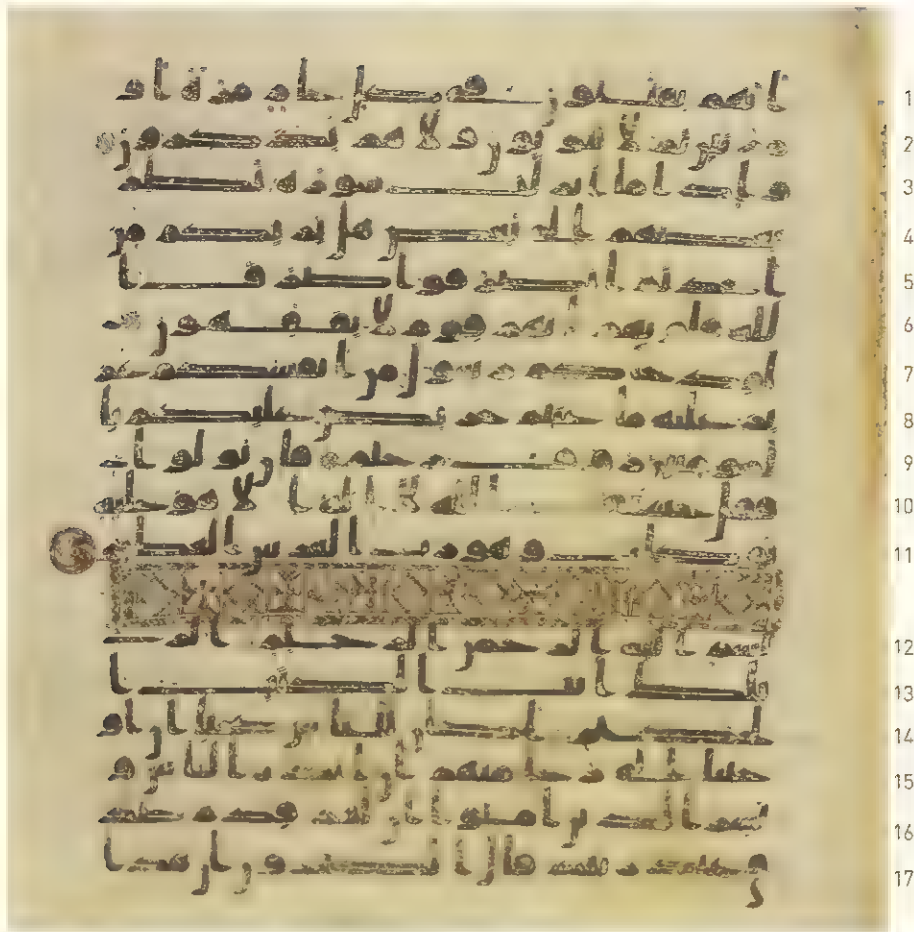 انهم يفتنون في كل عام مرة او 1
مرتين ثم لا يتوبون ولا هم يذكرون 2
واذا ما انزلت سورة نظر 3
بعضهم الى بعض هل يريكم من 4
احد ثم انصرفوا صرف ا 5
لله قلوبهم بانهم قوم لا يفقهون 6
لقد جاكم رسول من انفسكم عز 7
يز عليه ما عنتم حريص عليكم با 8
لمومنين روف رحيم فان تولوا 9
فقل حسبي الله لا اله الا هو عليه 10
توكلت وهو رب العرش العظيم 11
بسم الله الرحمن الرحيم الر 12
تلك ايت الكتب ا 13
لحكيم اكان للناس عجبا ان او 14
حينا الى رجل منهم ان انذر الناس و 15
بشر الذين امنوا ان لهم قدم صد 16
ق عند ربهم قال الكفرون ان هذا 17